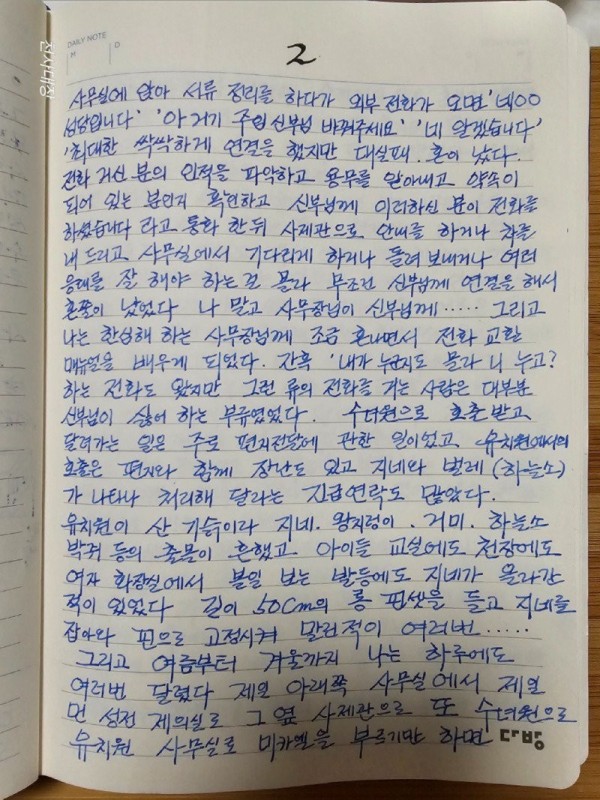 DAILY NOTE
M D
2
전시대장
사무실에 앉아 서류 정리를 하다가 외부전화가 오면 '네OO
성당입니다' '아 거기 주임신부님 바꿔주세요' '네 알겠습니다'
'최대한 싹싹하게 연결을 했지만 대실패. 혼이 났다.
전화 거신 분의 인적을 파악하고 용무를 알아내고 약속이
되어 있는 분인지 확인하고 신부님께 이러하신 분이 전화를
하셨습니다 라고 통화 한뒤 사제관으로 안내를 하거나 차를
내 드리고 사무실에서 기다리게 하거나 돌려 보내거나 여러
응대를 잘 해야 하는걸 몰라 무조건 신부님께 연결을 해서
혼쭐이 났었다 나 말고 사무장님이 신부님께...... 그리고
나는 한심해 하는 사무장님께 조금 혼나면서 전화 교환
매뉴얼을 배우게 되었다. 간혹 '내가 누군지도 몰라 니 누고?
하는 전화도 왔지만 그런 류의 전화를 거는 사람은 대부분
신부님이 싫어 하는 부류였었다. 수녀원으로 호출 받고
달려가는 일은 주로 편지전달에 관한 일이었고 유치원에서의
호출은 편지와 함께 장난도 있고 지네와 벌레 (하늘소)
가 나타나 처리해 달라는 긴급연락도 많았다.
유치원이 산 기슭이라 지네. 왕지렁이. 거미. 하늘소
박쥐 등의 출몰이 흔했고 아이들 교실에도 천장에도
여자 화장실에서 볼일 보는 발등에도 지네가 올라간
적이 있었다 길이 50cm의 롱 핀셋을 들고 지네를
잡아와 핀으로 고정시켜 말린적이 여러번.....
그리고 여름부터 겨울까지 나는 하루에도
여러번 달렸다 제일 아래쪽 사무실에서 제일
먼 성전 제의실로 그 옆 사제관으로 또 수녀원으로
유치원 사무실로 미카엘을 부르기만 하면
다방